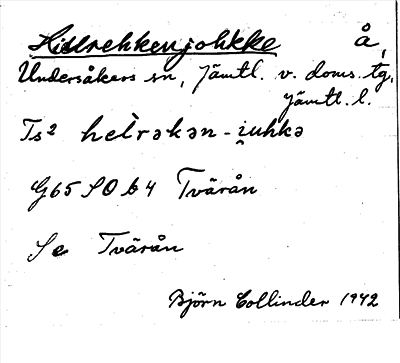 Hillrehkenjohkke å,
Undersåkers sn, Jämtl. v. doms. tg,
Jämtl. l.
Ts² helrəkən-i̯uhkə
G65 SO b4 Tvärån
Se Tvärån
Björn Collinder 1942